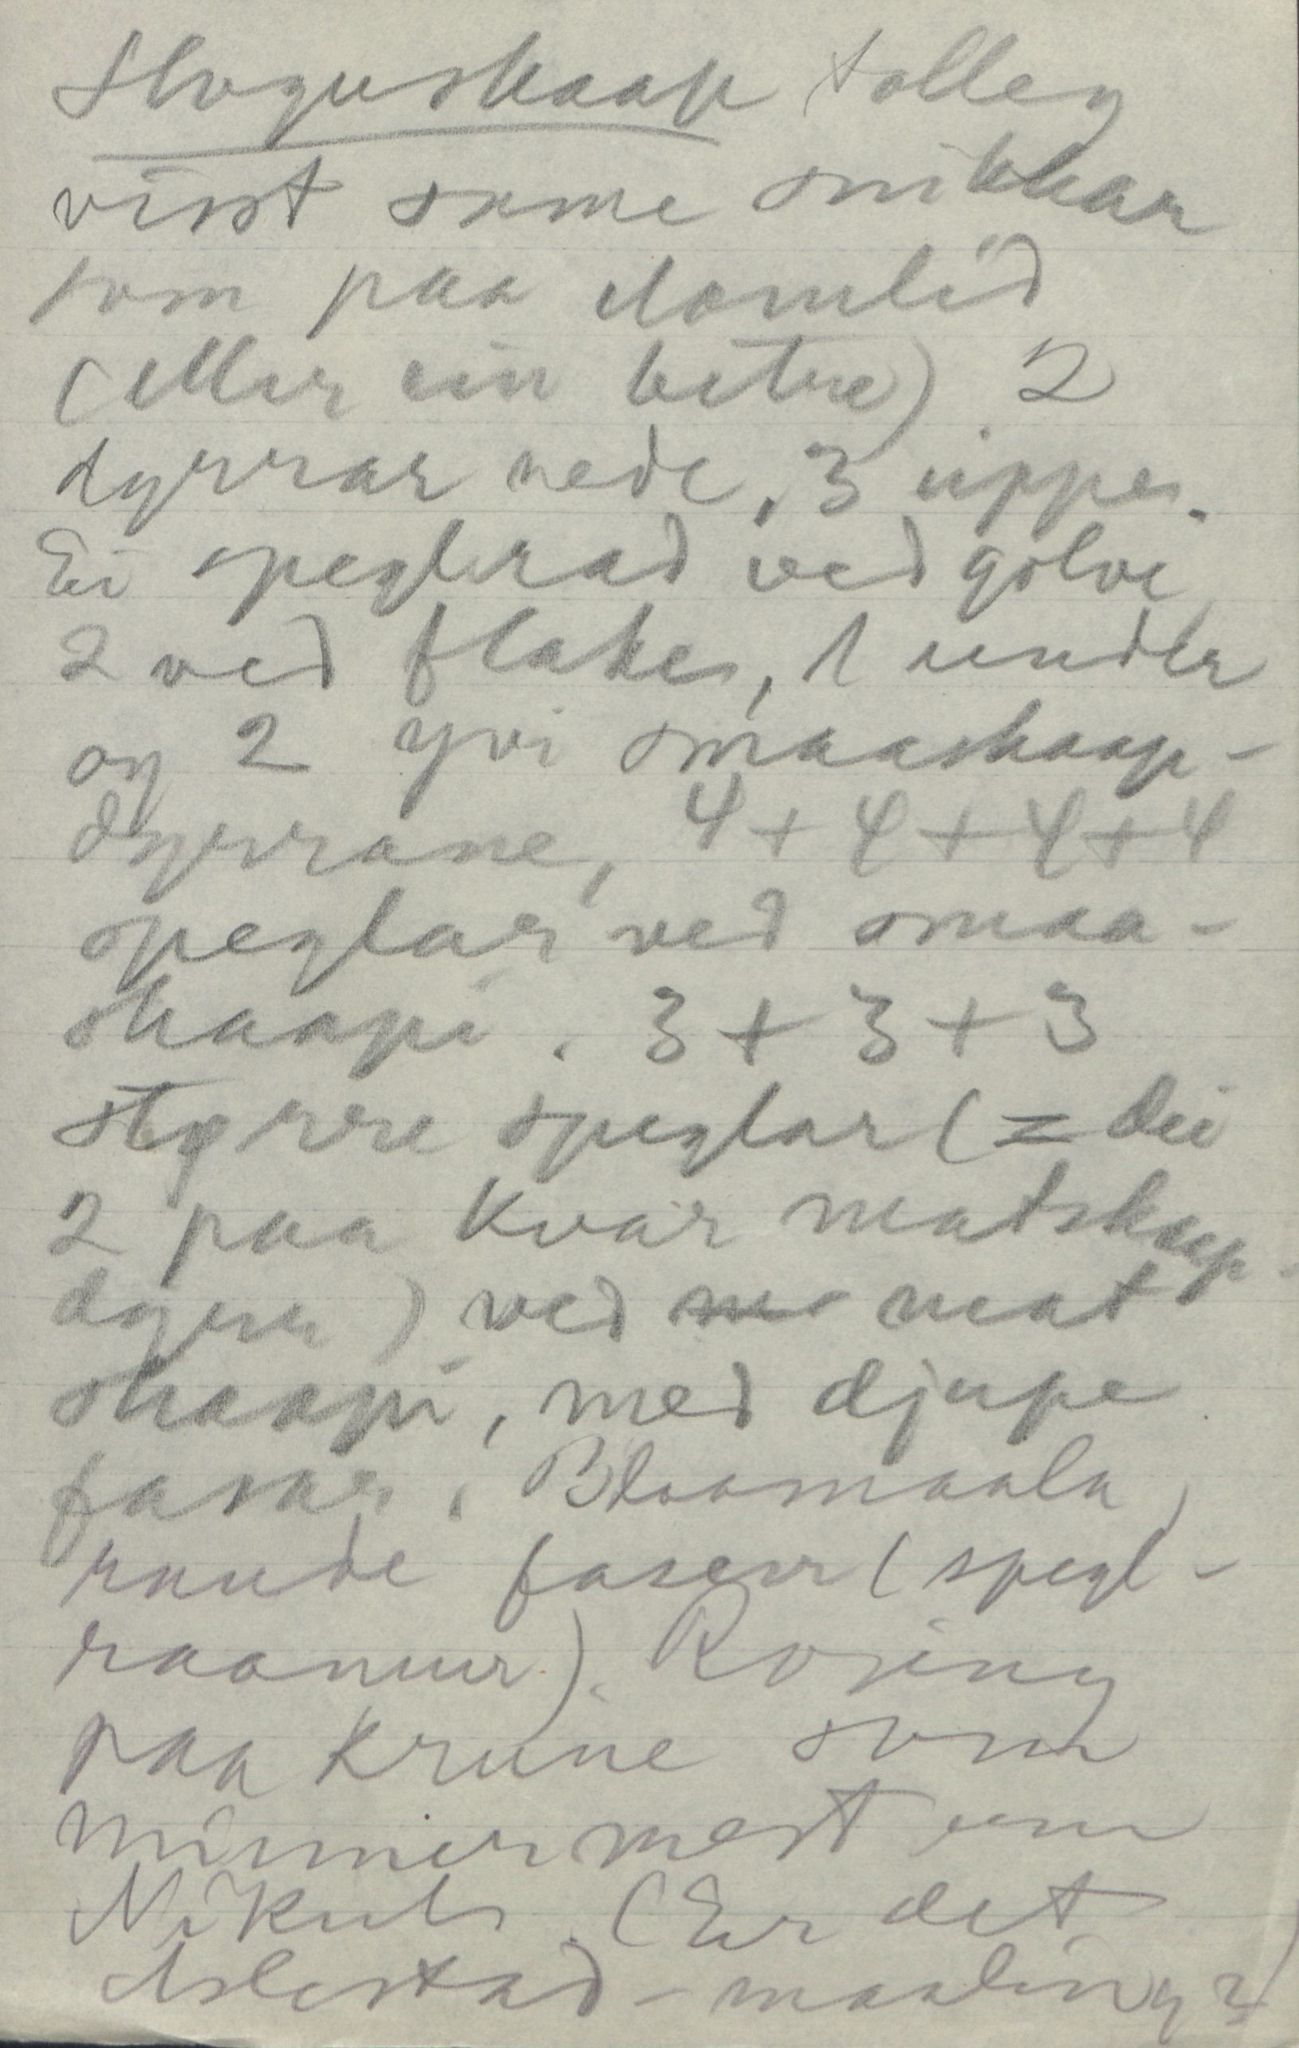 Stoguskaap Tolleg
visst same snikkar
som paa Aamlid
(eller ein betre). 2
dyrrar nede, 3 uppe.
Ei speglrad ved golve
2 ved flakes, 1 under
og 2 yvi smaaskaap-
dyrrane, 4 + 4 + 4 + 4
speglar ved smaa-
skaapi. 3 + 3 + 3
større speglar (= dei
2 paa kvar matskaap-
dyrr) ved mat
skaapi, med djupe
fasar. Blaamaala,
raude fasar (spegl-
raamur). Rosing
paa krune som
minner mest um
Nikuls. (Er det
Aslestad-maaling?)